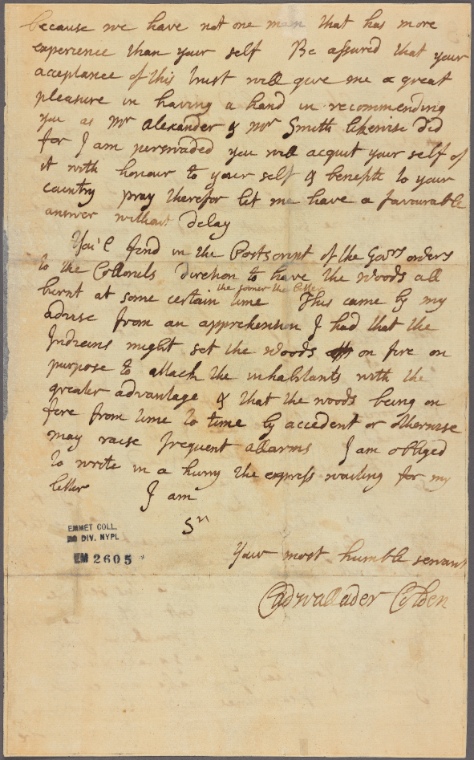 because we have not one man that has more
experience than your self Be assured that your
acceptance of this trust will give me a great
pleasure in having a hand in recommending
you as Mr Alexander & Mr Smith likewise did
for I am perswaded you will acquit your self of
it with honour to your self & benefite to your
country pray therefor let me have a favourable
answer without delay
You'l find in the Postscript of the Govrs orders
to the Collonels direction to have the woods all
the sooner the better
burnt at some certain time This came by my
advise from an apprehension I had that the
Indians might set the woods on fire on
purpose to attack the inhabitants with the
greater advantage & that the woods being on
fire from time to time by accedent or otherwise
may raise frequent allarms I am obliged
to write in a hurry the express waiting for my
letter I am
Sr
Your most humble servant
Cadwallader Colden
EMMET COLL.
DIV. NYPL
EM 2605